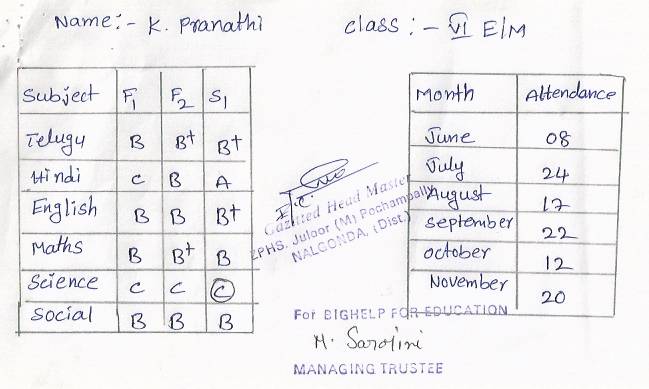 Name:- K. Pranathi
class :- VI E/M
Subject F1 F2 S1
Telugu B B+ B+
Hindi C B A
English B B B+
Maths B B+ B
Science C C C
Social B B B
Month Attendance
June 08
July 24
August 17
September 22
october 12
November 20
Gazitted Head Master
ZPHS. Juloor (M) Pochampally
NALGONDA, (Dist.)
For BIGHELP FOR EDUCATION
M. Sarojini
MANAGING TRUSTEE